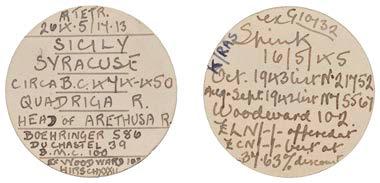 Æ TETR.
26 IX·5/17·13
SICILY
SYRACUSE
CIRCA B.C. 479-450
QUADRIGA R.
HEAD OF ARETHUSA R.
BOEHRINGER 586
DU CHASTEL 39
B.M.C. 100
EX WOODWARD 102
HIRSCH XXXII
ex G10132
K/RAS
Spink
16/5/45
Oct. 1943 List No 21752
Aug-Sept. 1942 List No 15567
Woodward 102
£LN/-/- offered at
£CN/-/- but at
37.63% discount